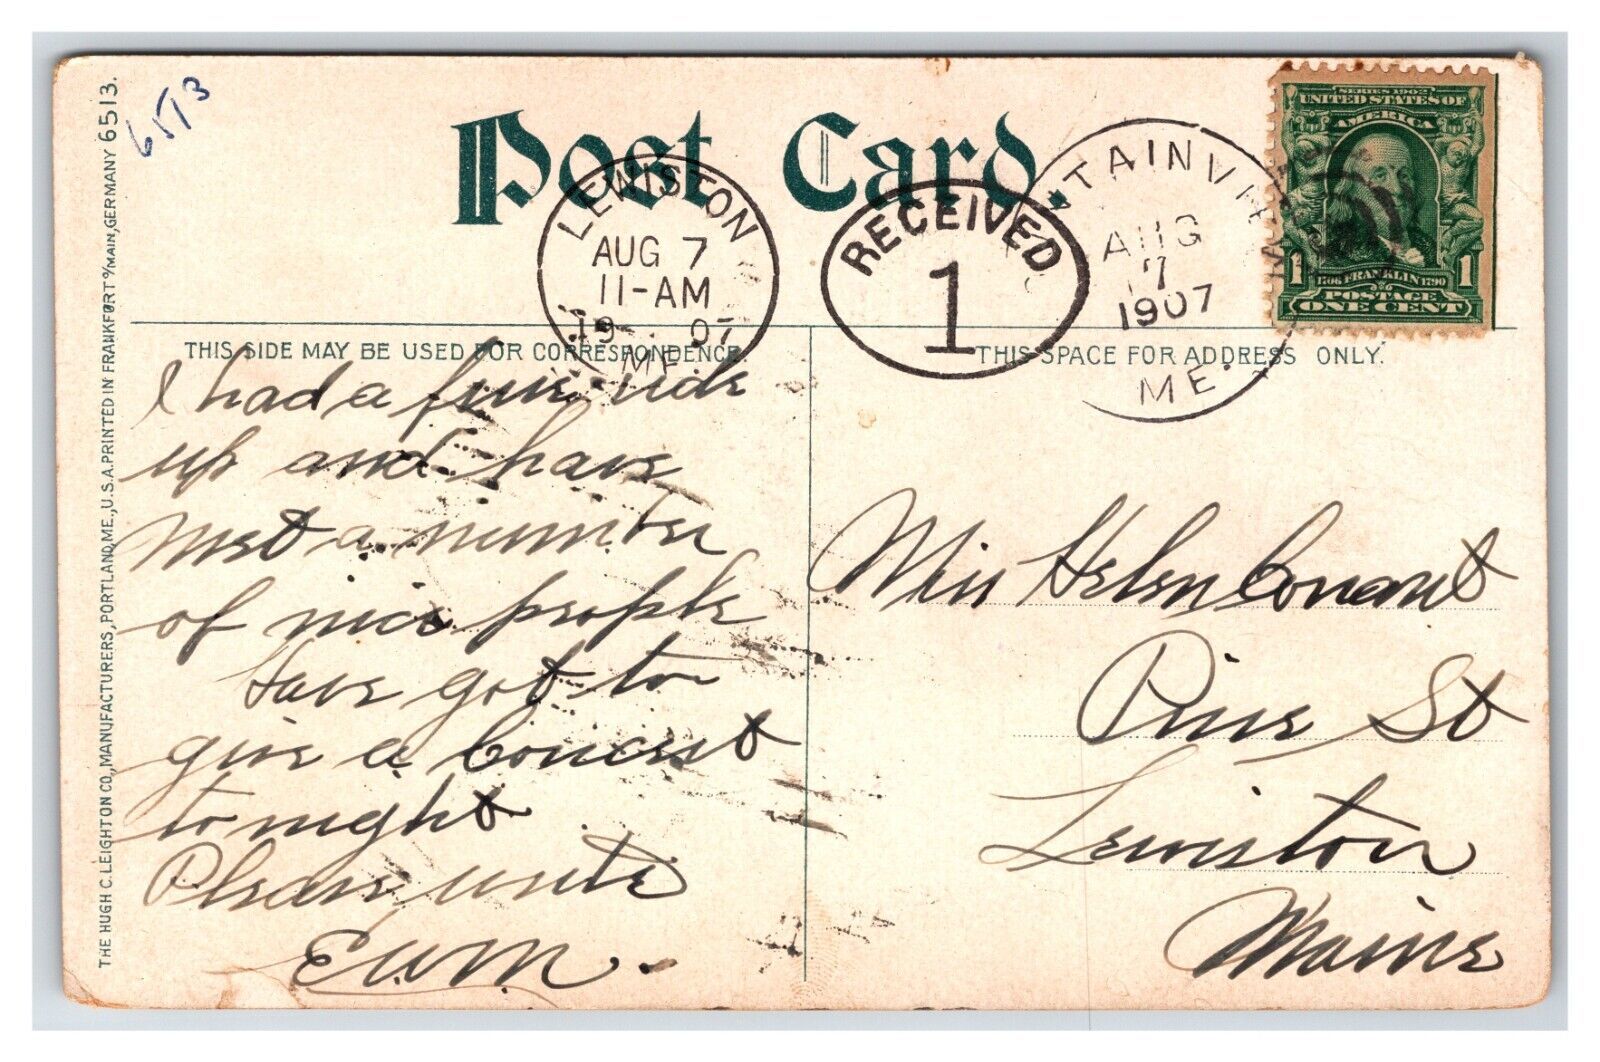 6513
Post Card.
SERIES 1902
UNITED STATES OF
AMERICA
1 FRANKLIN 1
1706 1790
POSTAGE
ONE CENT
LEWISTON
AUG 7
11-AM
19 07
ME.
RECEIVED
1
TAINVI
AUG
7
1907
ME.
THIS SIDE MAY BE USED FOR CORRESPONDENCE.
THIS SPACE FOR ADDRESS ONLY.
I had a fine ride
up and have
met a number
of nice people
Have got to
give a Concert
tonight
Please write
E.W.M.
Miss Helen Conant
Pine St
Lewiston
Maine
THE HUGH C. LEIGHTON CO., MANUFACTURERS, PORTLAND, ME., U.S.A. PRINTED IN FRANKFORT o/MAIN, GERMANY 6513.